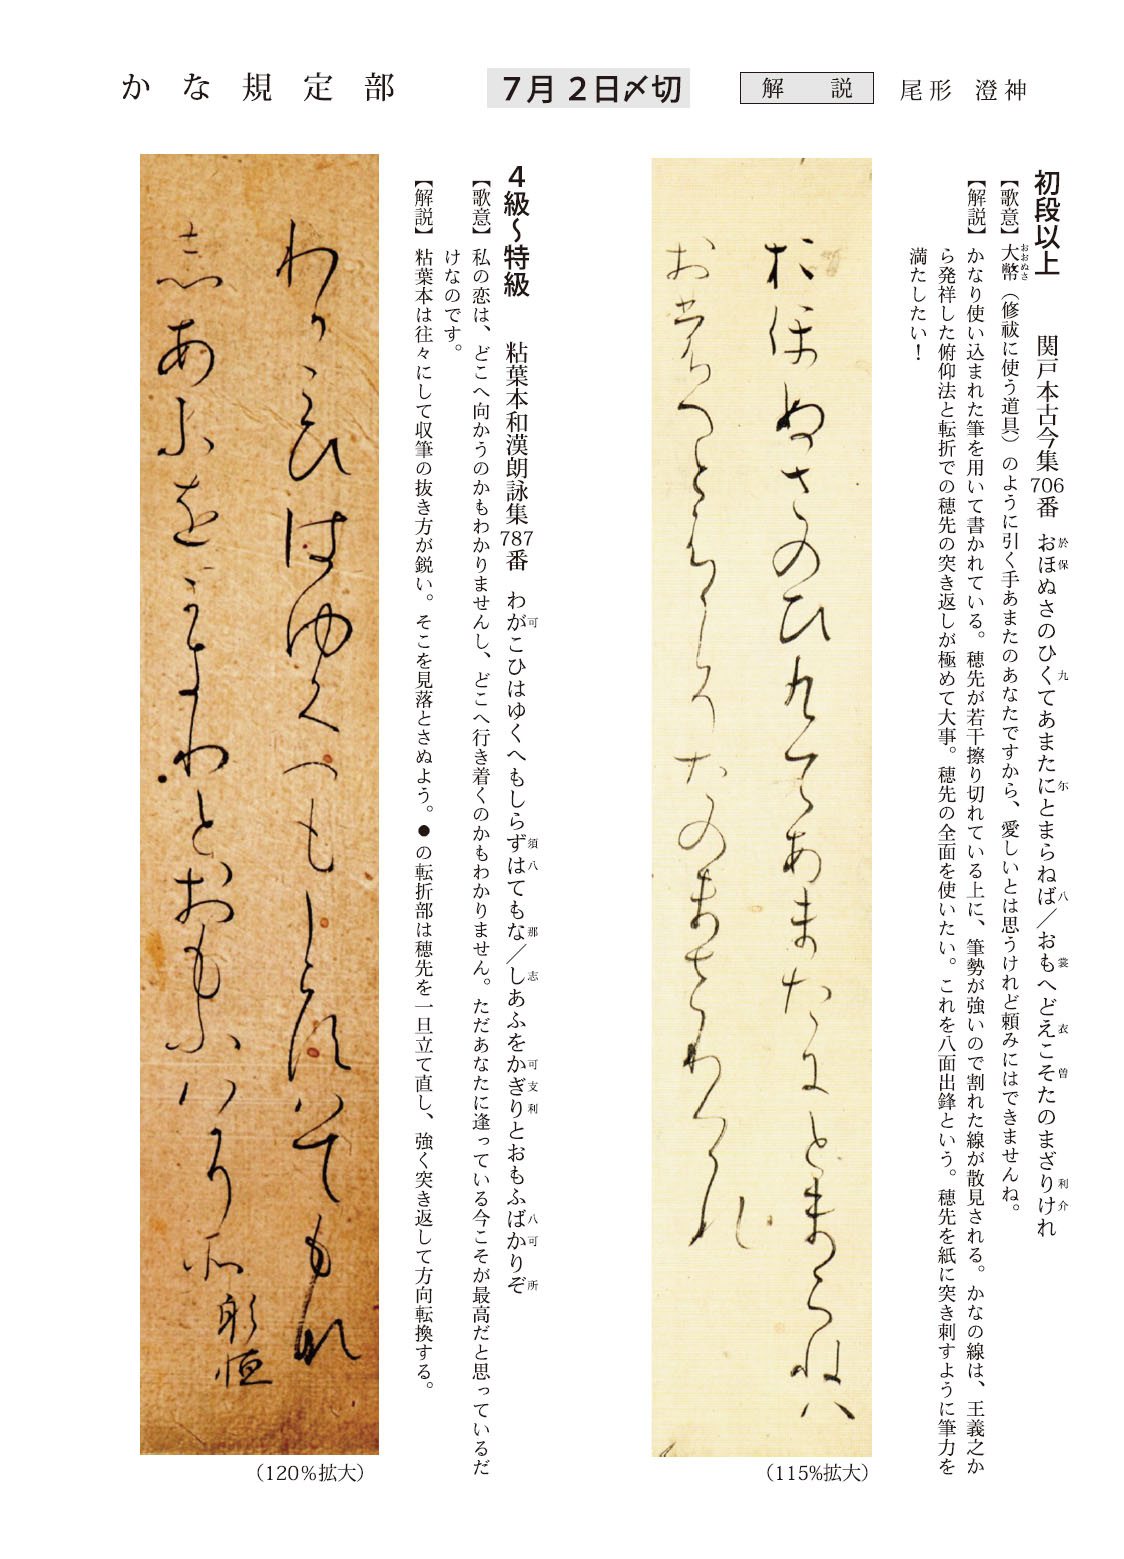 かな規定部
7月2日〆切
解説
尾形 澄神
初段以上 関戸本古今集706番 おほぬさのひくてあまたにとまらねば／おもへどえこそたのまざりけれ
於保 九 尓 八 裳 衣 曽 利介
【歌意】大幣（修祓に使う道具）のように引く手あまたのあなたですから、愛しいとは思うけれど頼みにはできませんね。
おおぬさ
【解説】かなり使い込まれた筆を用いて書かれている。穂先が若干擦り切れている上に、筆勢が強いので割れた線が散見される。かなの線は、王義之か
ら発祥した俯仰法と転折での穂先の突き返しが極めて大事。穂先の全面を使いたい。これを八面出鋒という。穂先を紙に突き刺すように筆力を
満たしたい！
おほぬさのひ九てあまたにとまらねハ
（115%拡大）
4級〜特級 粘葉本和漢朗詠集787番 わがこひはゆくへもしらずはてもな／しあふをかぎりとおもふばかりぞ
可 須八 那 志 可支利 八可 所
【歌意】私の恋は、どこへ向かうのかもわかりませんし、どこへ行き着くのかもわかりません。ただあなたに逢っている今こそが最高だと思っているだ
けなのです。
【解説】粘葉本は往々にして収筆の抜き方が鋭い。そこを見落とさぬよう。●の転折部は穂先を一旦立て直し、強く突き返して方向転換する。
わ可こひはゆくへもしら須八ても那
志あふを可支利とおもふ八可り所
躬恒
（120%拡大）